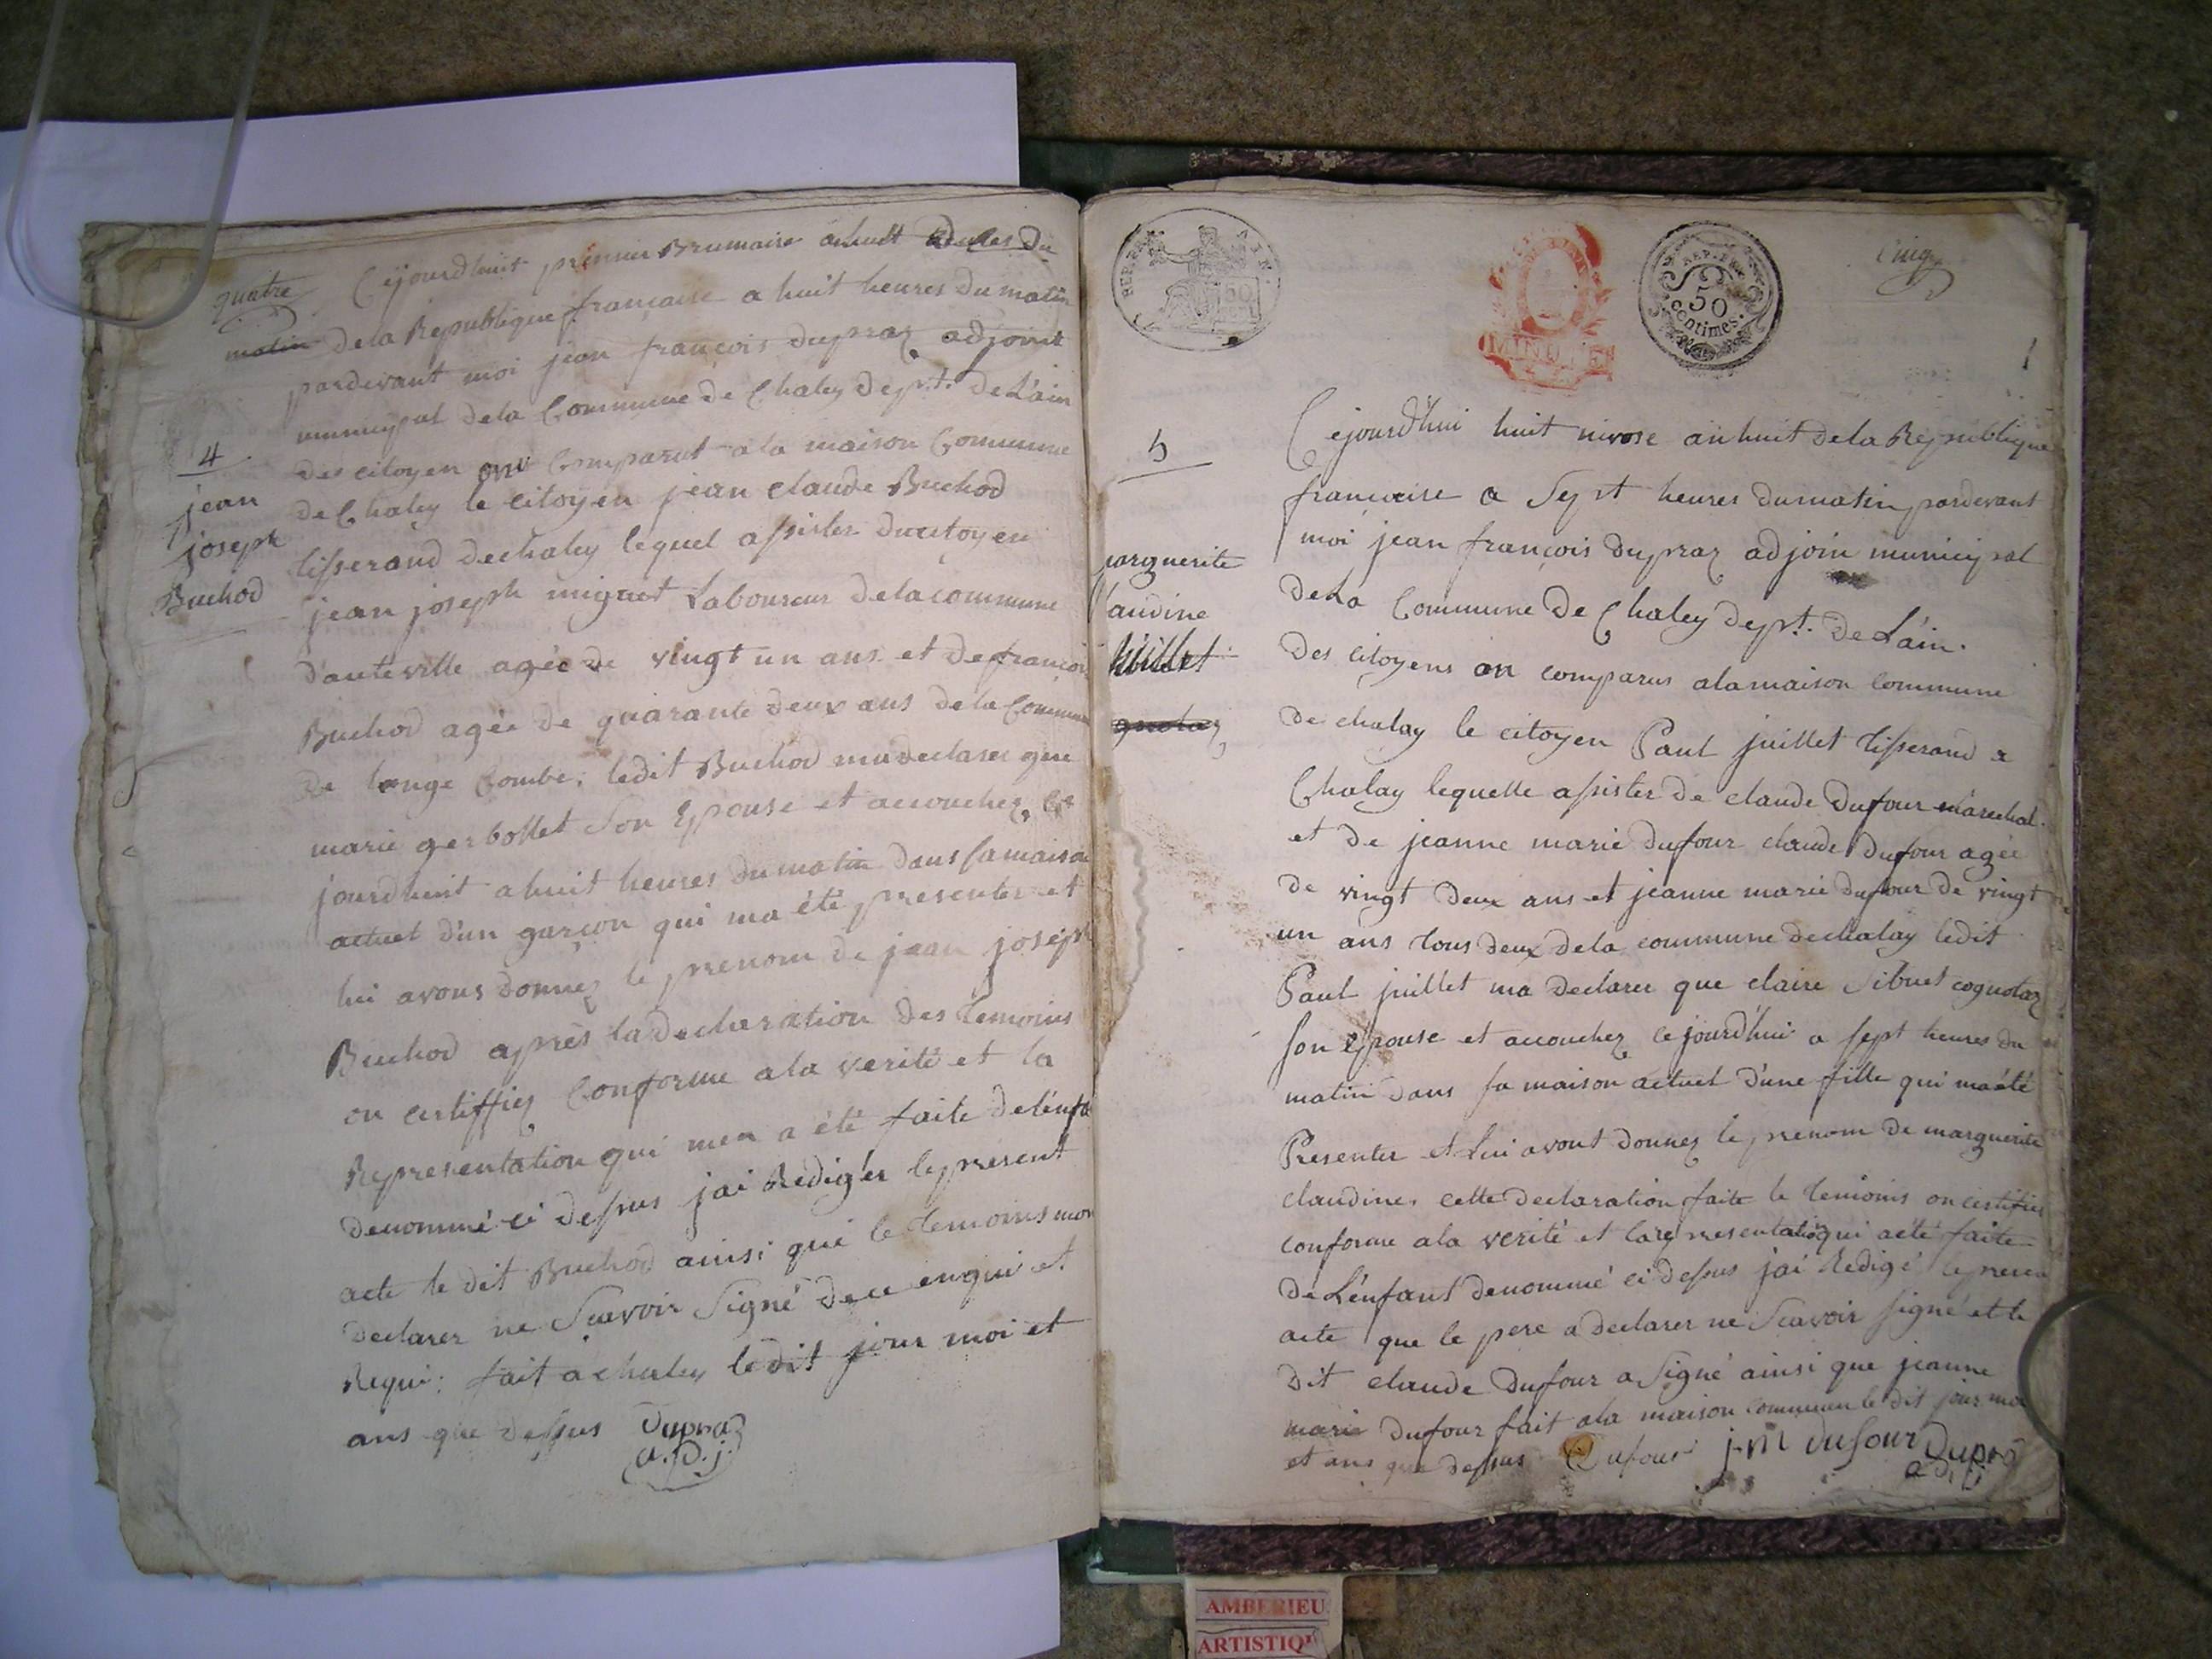 quatre
Cejourdhuit premier Brumaire anhuit du
matin dela Republique francaise a huit heures du matin
pardevant moi jean françois dupraz adjoint
municipal dela Commune de Chaley dept. de L'ain
des citoyen on Comparut ala maison Commune
de Chaley le citoyen jean claude Buchod
tisserand dechaley lequel assister ducitoyen
jean joseph mignot Laboureur delacommune
d'auteville agée de vingt un ans et de françoi
Buchod agée de quarante deux ans dela Commun
de longe Combe, ledit Buchod madeclarer que
marie gerbollet Son Epouse et accouchez Ce
jourdhuit a huit heures du matin dans samaison
actuel d'un garçon qui ma été presenter et
lui avons donnez le prenom de jean joseph
Buchod après la declaration des temoins
on certiffiez Conforme ala verité et la
Representation qui men a été faite delenfa
denommé ci dessus jai Rediger le present
acte le dit Buchod ainsi que le temoins mon
declarer ne Scavoir Signé dece enqui et
Requi: fait a chaley ledit jour moi et
ans que dessus Dupraz
a.D.j
4
jean
joseph
Buchod
REP. FRA
50
centimes.
MINUTE
Cinq
5
marguerite
claudine
juillet
gnotaz
Cejourd'hui huit nivose anhuit dela Republique
francaise a Sept heures dumatin pardevant
moi jean françois dupraz adjoin municipal
deLa Commune de Chaley dept. de L'ain.
des citoyens on comparus alamaison commune
de chalay le citoyen Paul juillet tisserand a
Chalay lequelle assister de claude Dufour marechal.
et de jeanne marie dufour claude Dufour agée
de vingt deux ans et jeanne marie dufour de vingt
un ans tous deux dela commune dechalay ledit
Paul juillet ma declarer que claire Sibuet cognotaz
son Epouse et accouchez cejourd'hui a sept heures du
matin dans sa maison actuel d'une fille qui maété
Presenter et Lui avont donnez le prenom de marguerite
claudine. cette declaration faite le temoins on certifiez
conforme ala verité et la representation qui aété faite
de L'enfant denommé ci dessus jai Redigé le presen
acte que le pere a declarer ne Scavoir signé et le
Dit claude Dufour a Signé ainsi que jeanne
marie Dufour fait ala maison commune le dit jour moi
et ans que dessus Dufour j.m dufour Dupraz
a.D.j
AMBERIEU
ARTISTIQU